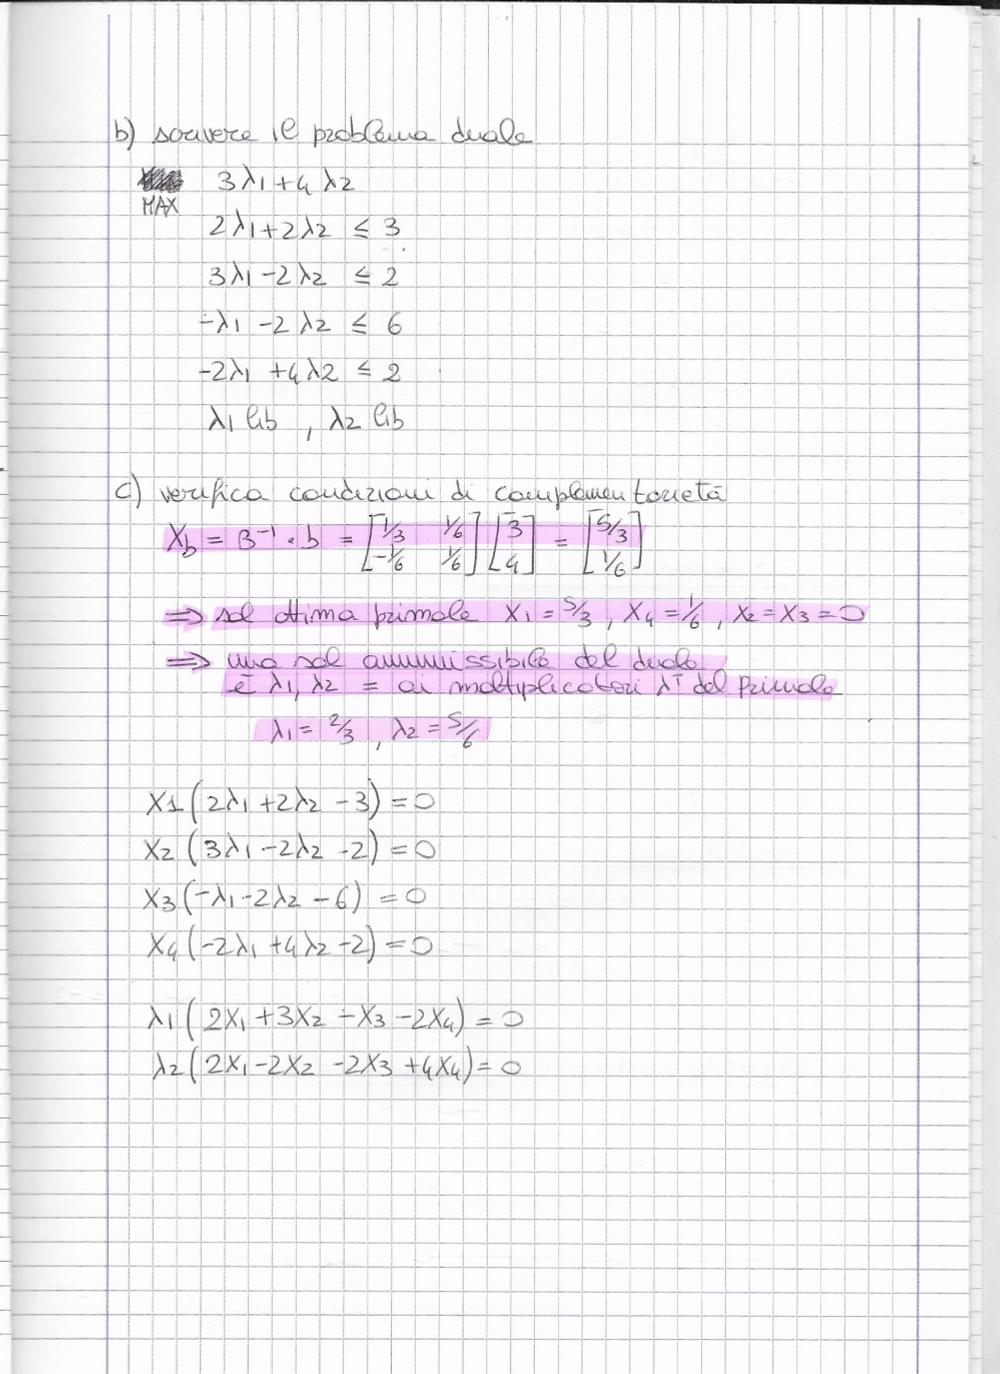 b) scrivere il problema duale
MAX 3λ1+4λ2
2λ1+2λ2 ≤ 3
3λ1-2λ2 ≤ 2
-λ1-2λ2 ≤ 6
-2λ1+4λ2 ≤ 2
λ1 lib , λ2 lib
c) verifica condizioni di complementarietà
Xb = B⁻¹ · b = [1/3 1/6; -1/6 1/6] [3; 4] = [5/3; 1/6]
⇒ sol ottima primale X1 = 5/3, X4 = 1/6, X2 = X3 = 0
⇒ una sol ammissibile del duale
è λ1, λ2 = ai moltiplicatori λᵀ del primale
λ1 = 2/3 , λ2 = 5/6
X1(2λ1+2λ2-3)=0
X2(3λ1-2λ2-2)=0
X3(-λ1-2λ2-6)=0
X4(-2λ1+4λ2-2)=0
λ1(2X1+3X2-X3-2X4)=0
λ2(2X1-2X2-2X3+4X4)=0